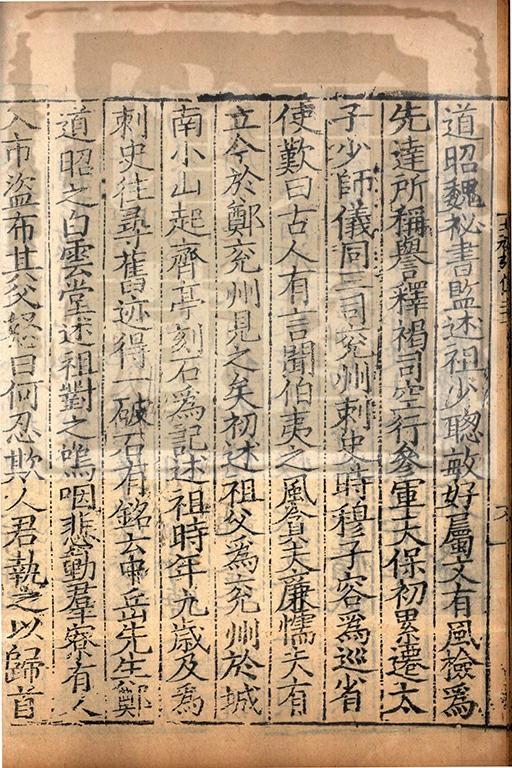 道昭魏祕書監述祖少聰敏好屬文有風檢爲
先達所稱譽釋褐司空行參軍天保初累遷太
子少師儀同三司兖州刺史時穆子容爲巡省
使歎曰古人有言聞伯夷之風貪夫廉懦夫有
立今於鄭兖州見之矣初述祖父爲兖州於城
南小山起齊亭刻石爲記述祖時年九歲及爲
刺史往尋舊迹得一破石有銘云中岳先生鄭
道昭之白雲堂述祖對之嗚咽悲動羣寮有人
入市盜布其父怒曰何忍欺人君執之以歸首